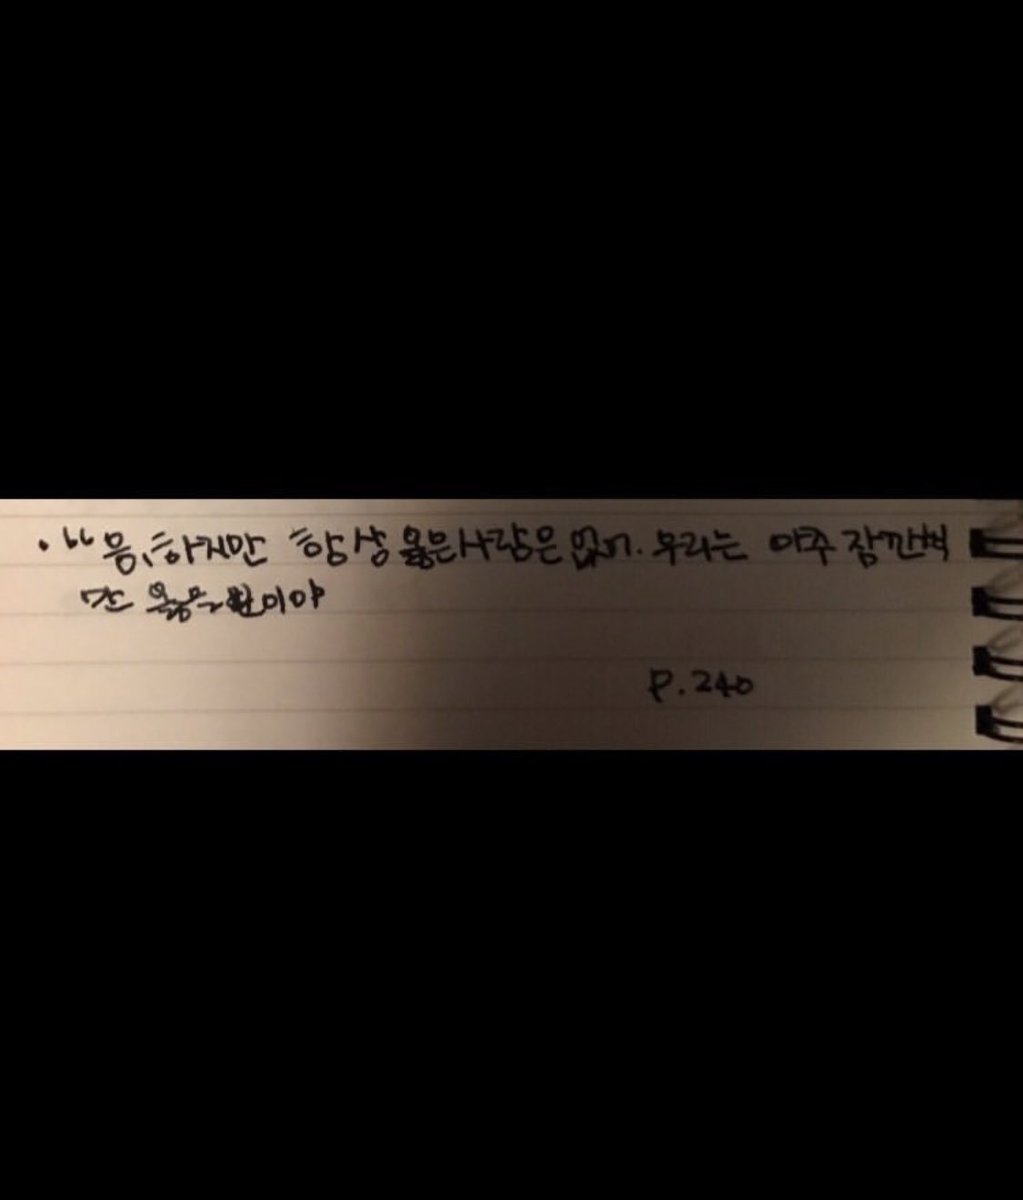 · “음, 하지만 항상 옳은 사람은 없어. 우리는 아주 잠깐씩
만 옳을 뿐이야
p.240